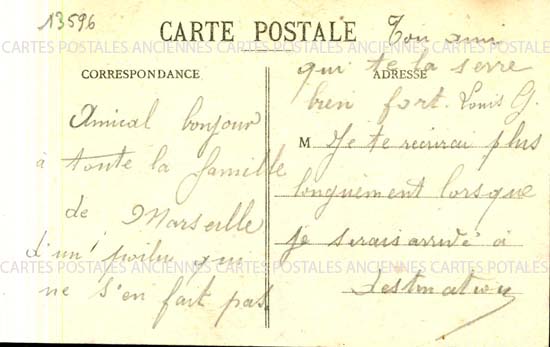 13596
CARTE POSTALE
CORRESPONDANCE
Amical bonjour
à toute la famille
de Marseille
d'un poilu qui
ne s'en fait pas
ADRESSE
M
Je te recrirai plus
longuement lorsque
je serais arrivé à
destination
Ton ami
qui te la serre
bien fort. Louis G.
CARTES POSTALES ANCIENNES CARTES POSTALES ANCIENNES CARTES POSTALES
CARTES POSTALES ANCIENNES CARTES POSTALES ANCIENNES CARTES POTALES